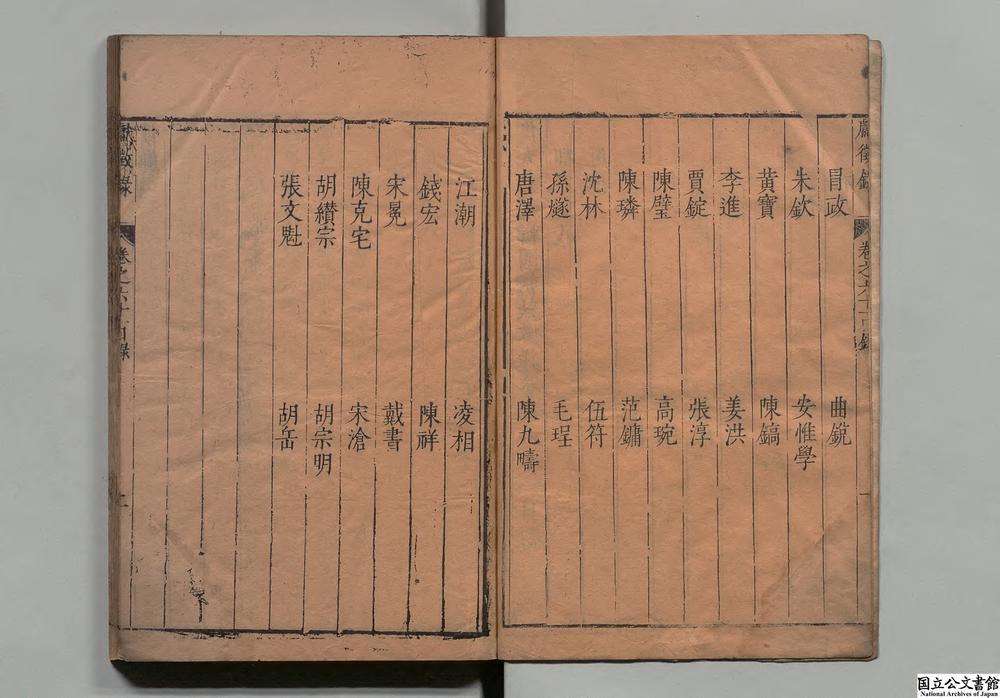 獻徵錄 卷之六十一目錄
冒政 曲銳
朱欽 安惟學
黃寶 陳鎬
李進 姜洪
賈錠 張淳
陳璧 高琬
陳璘 范鏞
沈林 伍符
孫燧 毛珵
唐澤 陳九疇
江潮 凌相
錢宏 陳祥
宋冕 戴書
陳克宅 宋滄
胡纘宗 胡宗明
張文魁 胡岳
獻徵錄 卷之六十一目錄
国立公文書館
National Archives of Japan